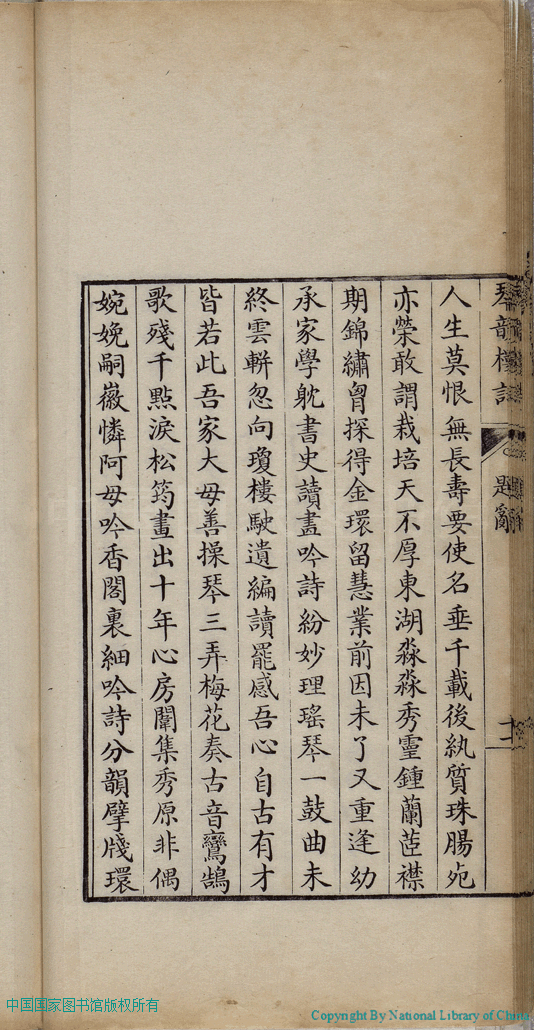 琴韻樓詩 題辭
人生莫恨無長壽要使名垂千載後紈質珠腸死
亦榮敢謂栽培天不厚東湖淼淼秀靈鍾蘭茝襟
期錦繡胷探得金環留慧業前因未了又重逢幼
承家學躭書史讀畫吟詩紛妙理瑤琴一鼓曲未
終雲軿忽向瓊樓駛遺編讀罷感吾心自古有才
皆若此吾家大母善操琴三弄梅花奏古音鸞鵠
歌殘千點淚松筠畫出十年心房闈集秀原非偶
婉娩嗣徽憐阿母吟香閣裏細吟詩分韻擘牋環
中国国家图书馆版权所有
Copyright By National Library of China